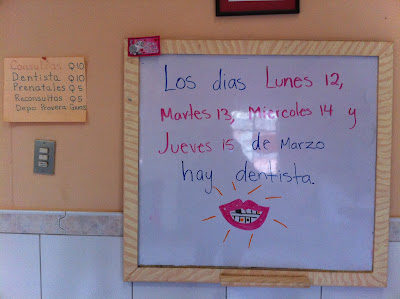 Consultas Q10
Dentista Q10
Prenatales Q5
Reconsultas Q5
Depo Provera Gratis
Los dias Lunes 12,
Martes 13, Miercoles 14 y
Jueves 15 de Marzo
hay dentista.